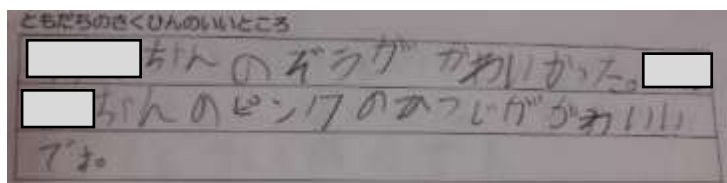 ともだちのさくひんのいいところ
ちゃんのぞうががかわいかった。
ちゃんのピンクのひつじががわいい
です。